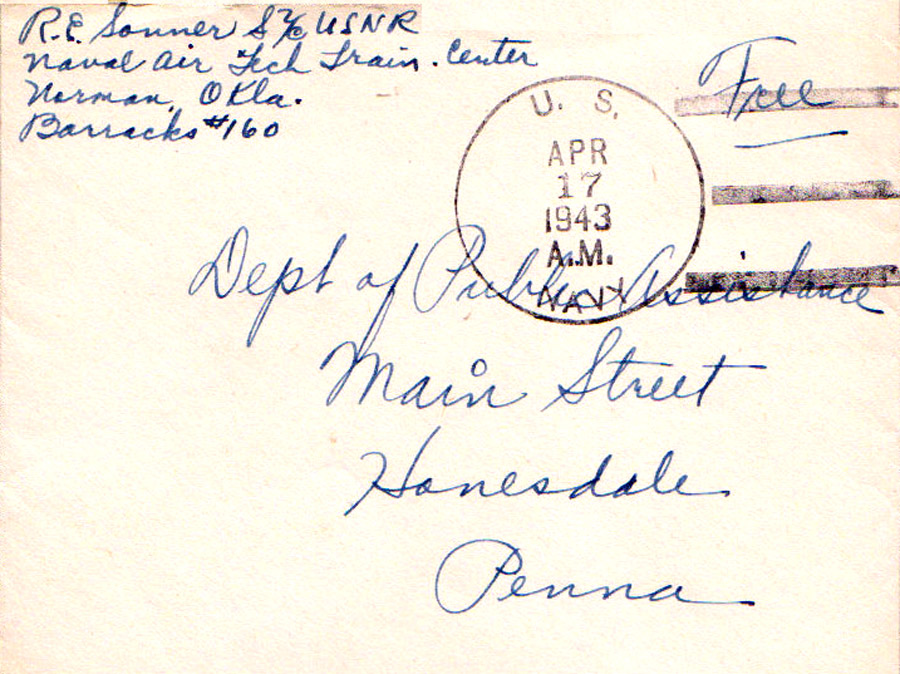 R.E. Sonner S 2/c USNR
Naval Air Tech Train. Center
Norman, Okla.
Barracks #160
Free
U. S.
APR
17
1943
A.M.
NAVY
Dept of Public Assistance
Main Street
Honesdale
Penna